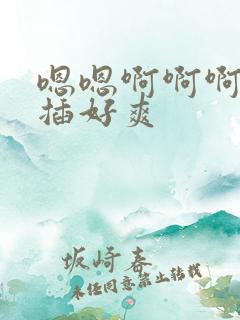 嗯嗯啊啊啊
插好爽
坂崎春
未经同意禁止转载